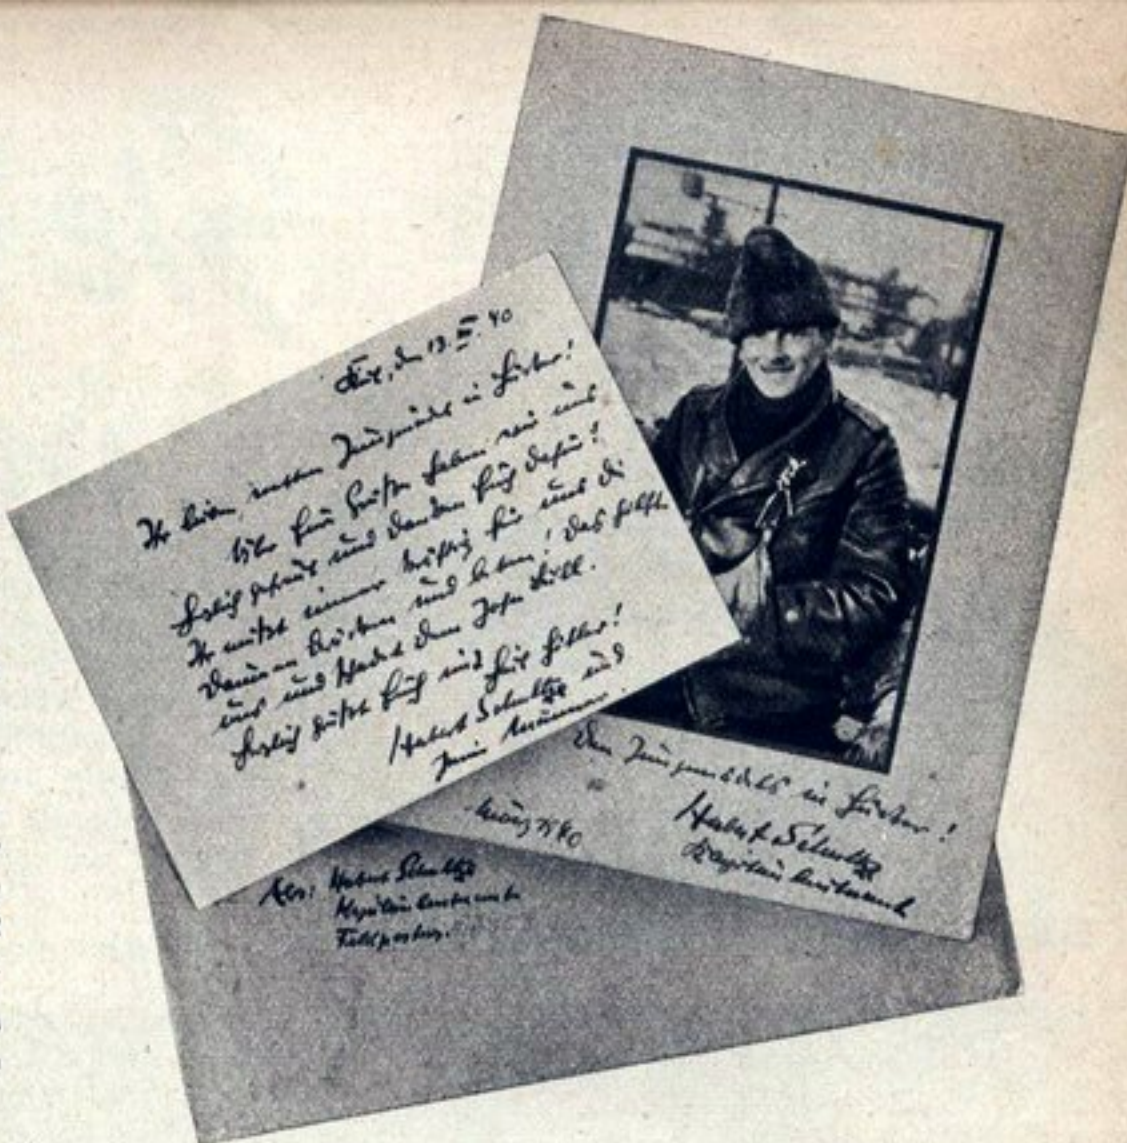 Kiel, den 13. III. 40
Ihr lieben, netten Jungmädel in Güster!
Über Eure Grüße haben wir uns
herzlich gefreut und danken Euch dafür!
Ihr müßt immer kräftig für uns die
Daumen drücken und beten! Das hilft
uns und schadet dem John Bull.
Herzlich grüßt Euch mit Heil Hitler!
Herbert Schultze und
seine Männer.
Den Jungmädels in Güster!
Herbert Schultze
Kapitänleutnant
März 1940
Abs: Herbert Schultze
Kapitänleutnant
Feldpostnr.